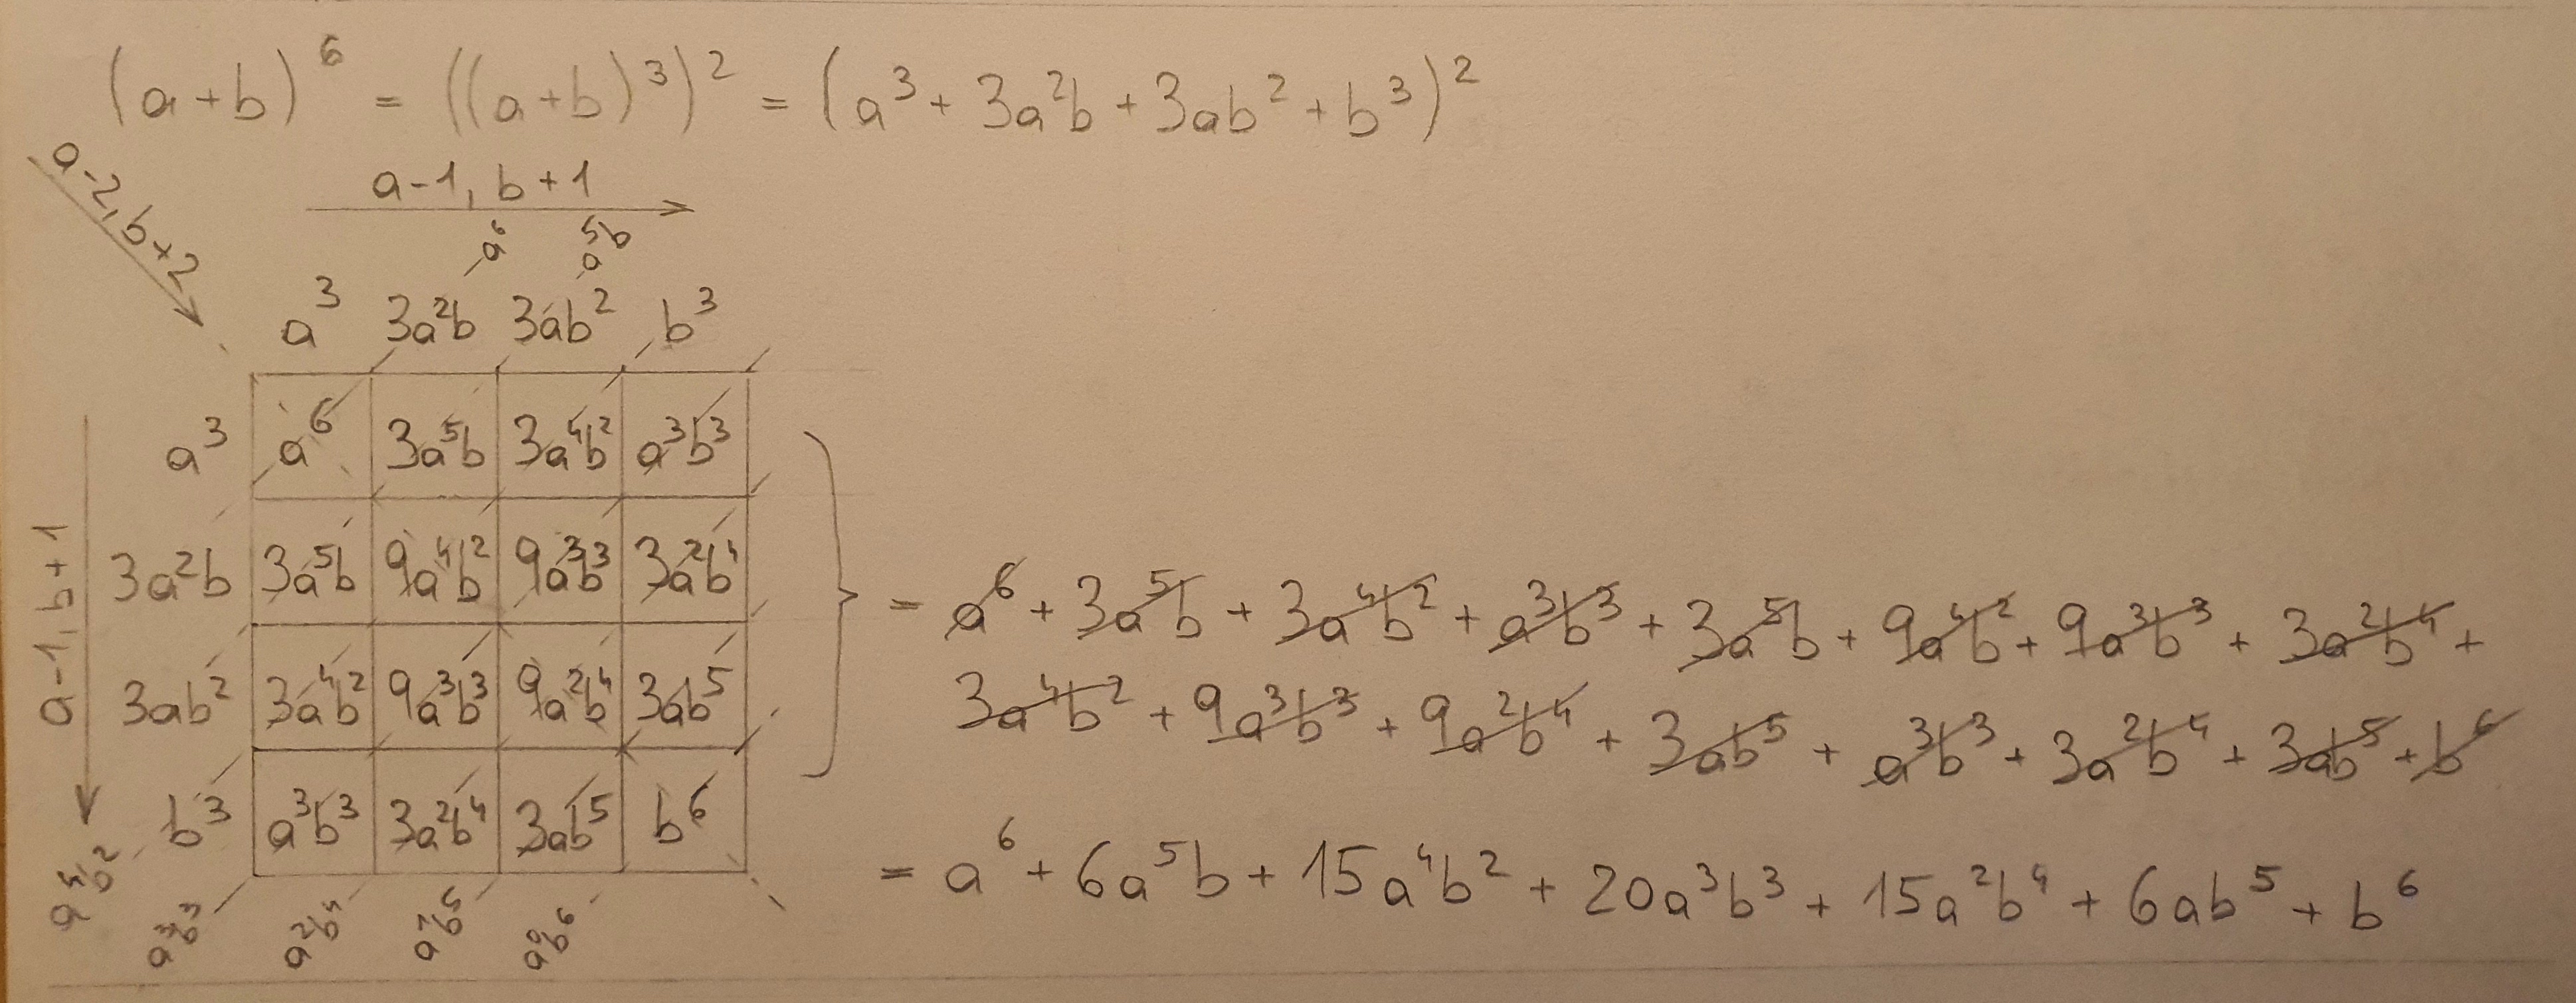 (a+b)⁶ = ((a+b)³)² = (a³ + 3a²b + 3ab² + b³)²
a-2, b+2
a-1, b+1
a⁶ a⁵b
a³ 3a²b 3ab² b³
a³ a⁶ 3a⁵b 3a⁴b² a³b³
3a²b 3a⁵b 9a⁴b² 9a³b³ 3a²b⁴
3ab² 3a⁴b² 9a³b³ 9a²b⁴ 3ab⁵
b³ a³b³ 3a²b⁴ 3ab⁵ b⁶
a-1, b+1
a⁴b² a³b³ a²b⁴ a¹b⁵ a⁰b⁶
= a⁶ + 3a⁵b + 3a⁴b² + a³b³ + 3a⁵b + 9a⁴b² + 9a³b³ + 3a²b⁴ +
3a⁴b² + 9a³b³ + 9a²b⁴ + 3ab⁵ + a³b³ + 3a²b⁴ + 3ab⁵ + b⁶
= a⁶ + 6a⁵b + 15a⁴b² + 20a³b³ + 15a²b⁴ + 6ab⁵ + b⁶